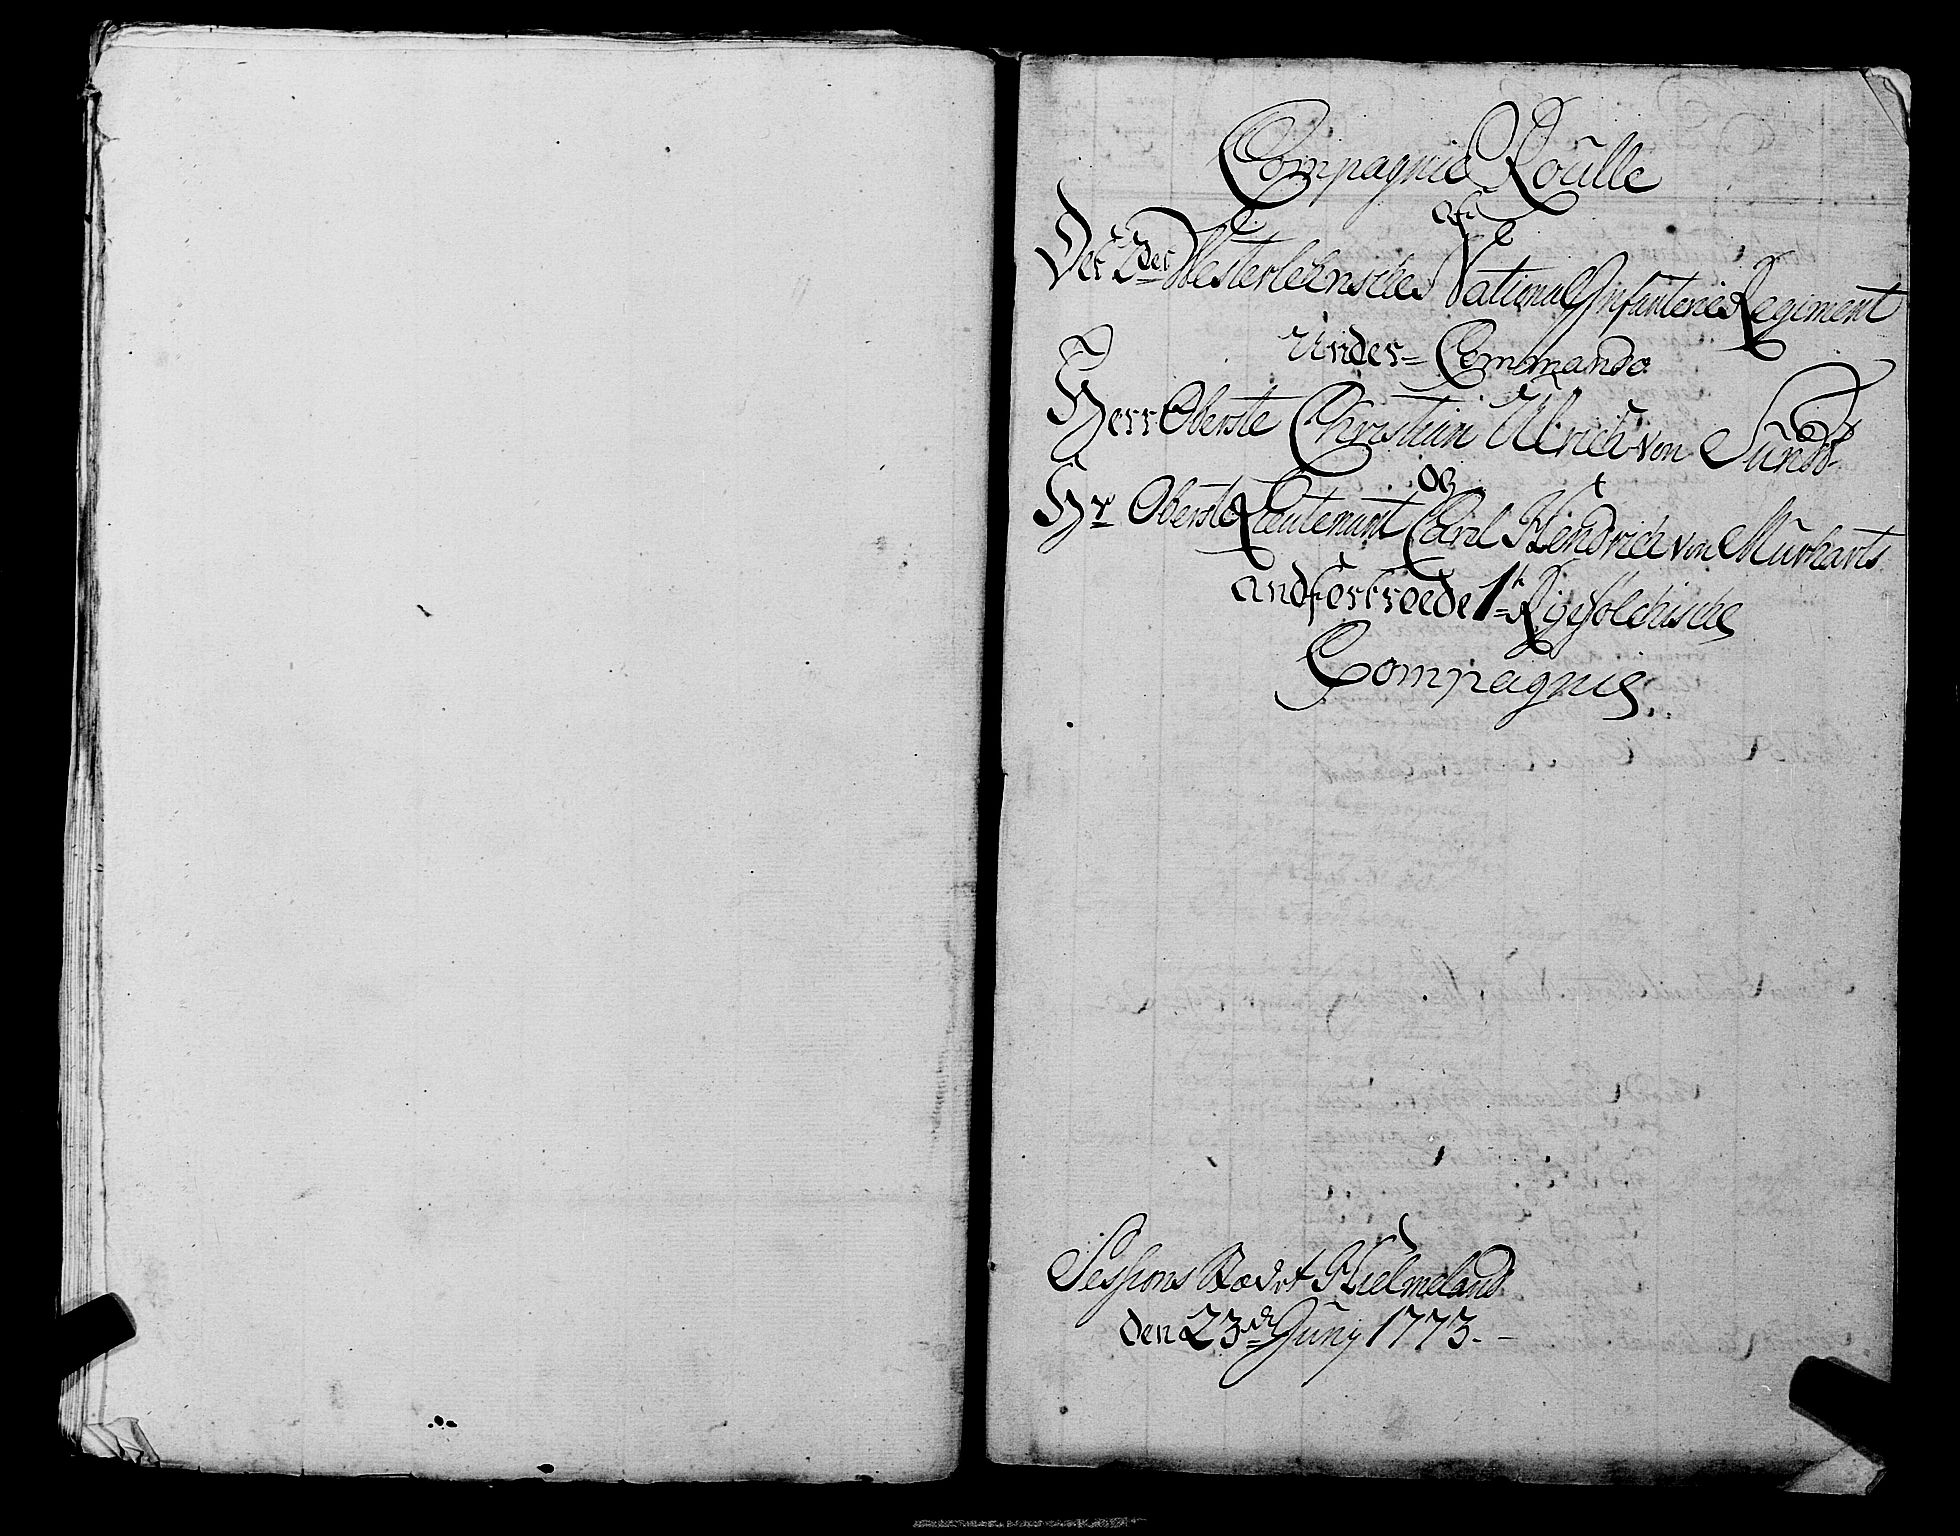 Compagnie Roulle
af
Det 2det Westerlehnsche National Infanterie Regiment
Under Commando
Herr Oberste Christian Ulrich von Sundt
og
Hr Oberste Lieutenant Carl Hendrich von Murharts
andfortroede 1te Ryefölchische
Compagnie.
Sessions Stædet Hielmeland
den 23de Juny 1773.